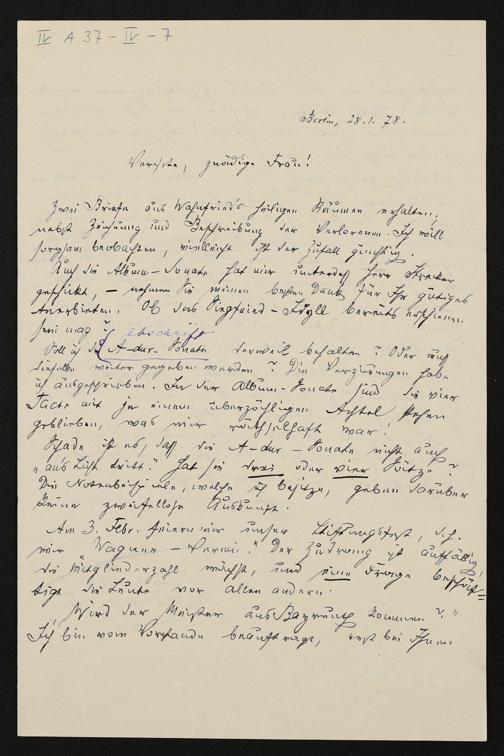 IV A 37 – IV – 7
Berlin, 28.1.78.
Verehrte, gnädige Frau!
Zwei Briefe aus Wahnfried's heiligen Räumen erhalten,
nebst Zeichnung und Beschreibung der Verlorenen. Ich will
sorgsam beobachten, vielleicht ist der Zufall günstig.
Auch die Album-Sonate hat mir indessen Herr Strecker
geschickt, – nehmen Sie meinen besten Dank für Ihr gütiges
Anerbieten. Ob das Siegfried-Idyll bereits erschienen
sein mag?
Abschrift
Soll ich die A-dur-Sonate derweil behalten? Oder muß
dieselbe weiter gegeben werden? Die Verzierungen habe
ich ausgeschrieben. In der Album-Sonate sind die vier
Tacte mit je einem überzähligen Achtel stehen
geblieben, was mir räthselhaft war!
Schade ist es, daß die A-dur-Sonate nicht auch
"an's Licht tritt." Hat sie drei oder vier Sätze?
Die Notenbeispiele, welche ich besitze, geben darüber
keine zweifellose Auskunft.
Am 3. Febr. feiern wir unser Stiftungsfest, d.h.
wir "Wagner-Verein." Der Zudrang ist auffällig,
die Mitgliederzahl wächst, und eine Frage beschäf=
tigt die Leute vor allen andern:
"Wird der Meister aus Bayreuth kommen?"
Ich bin vom Vorstande beauftragt, erst bei Ihnen